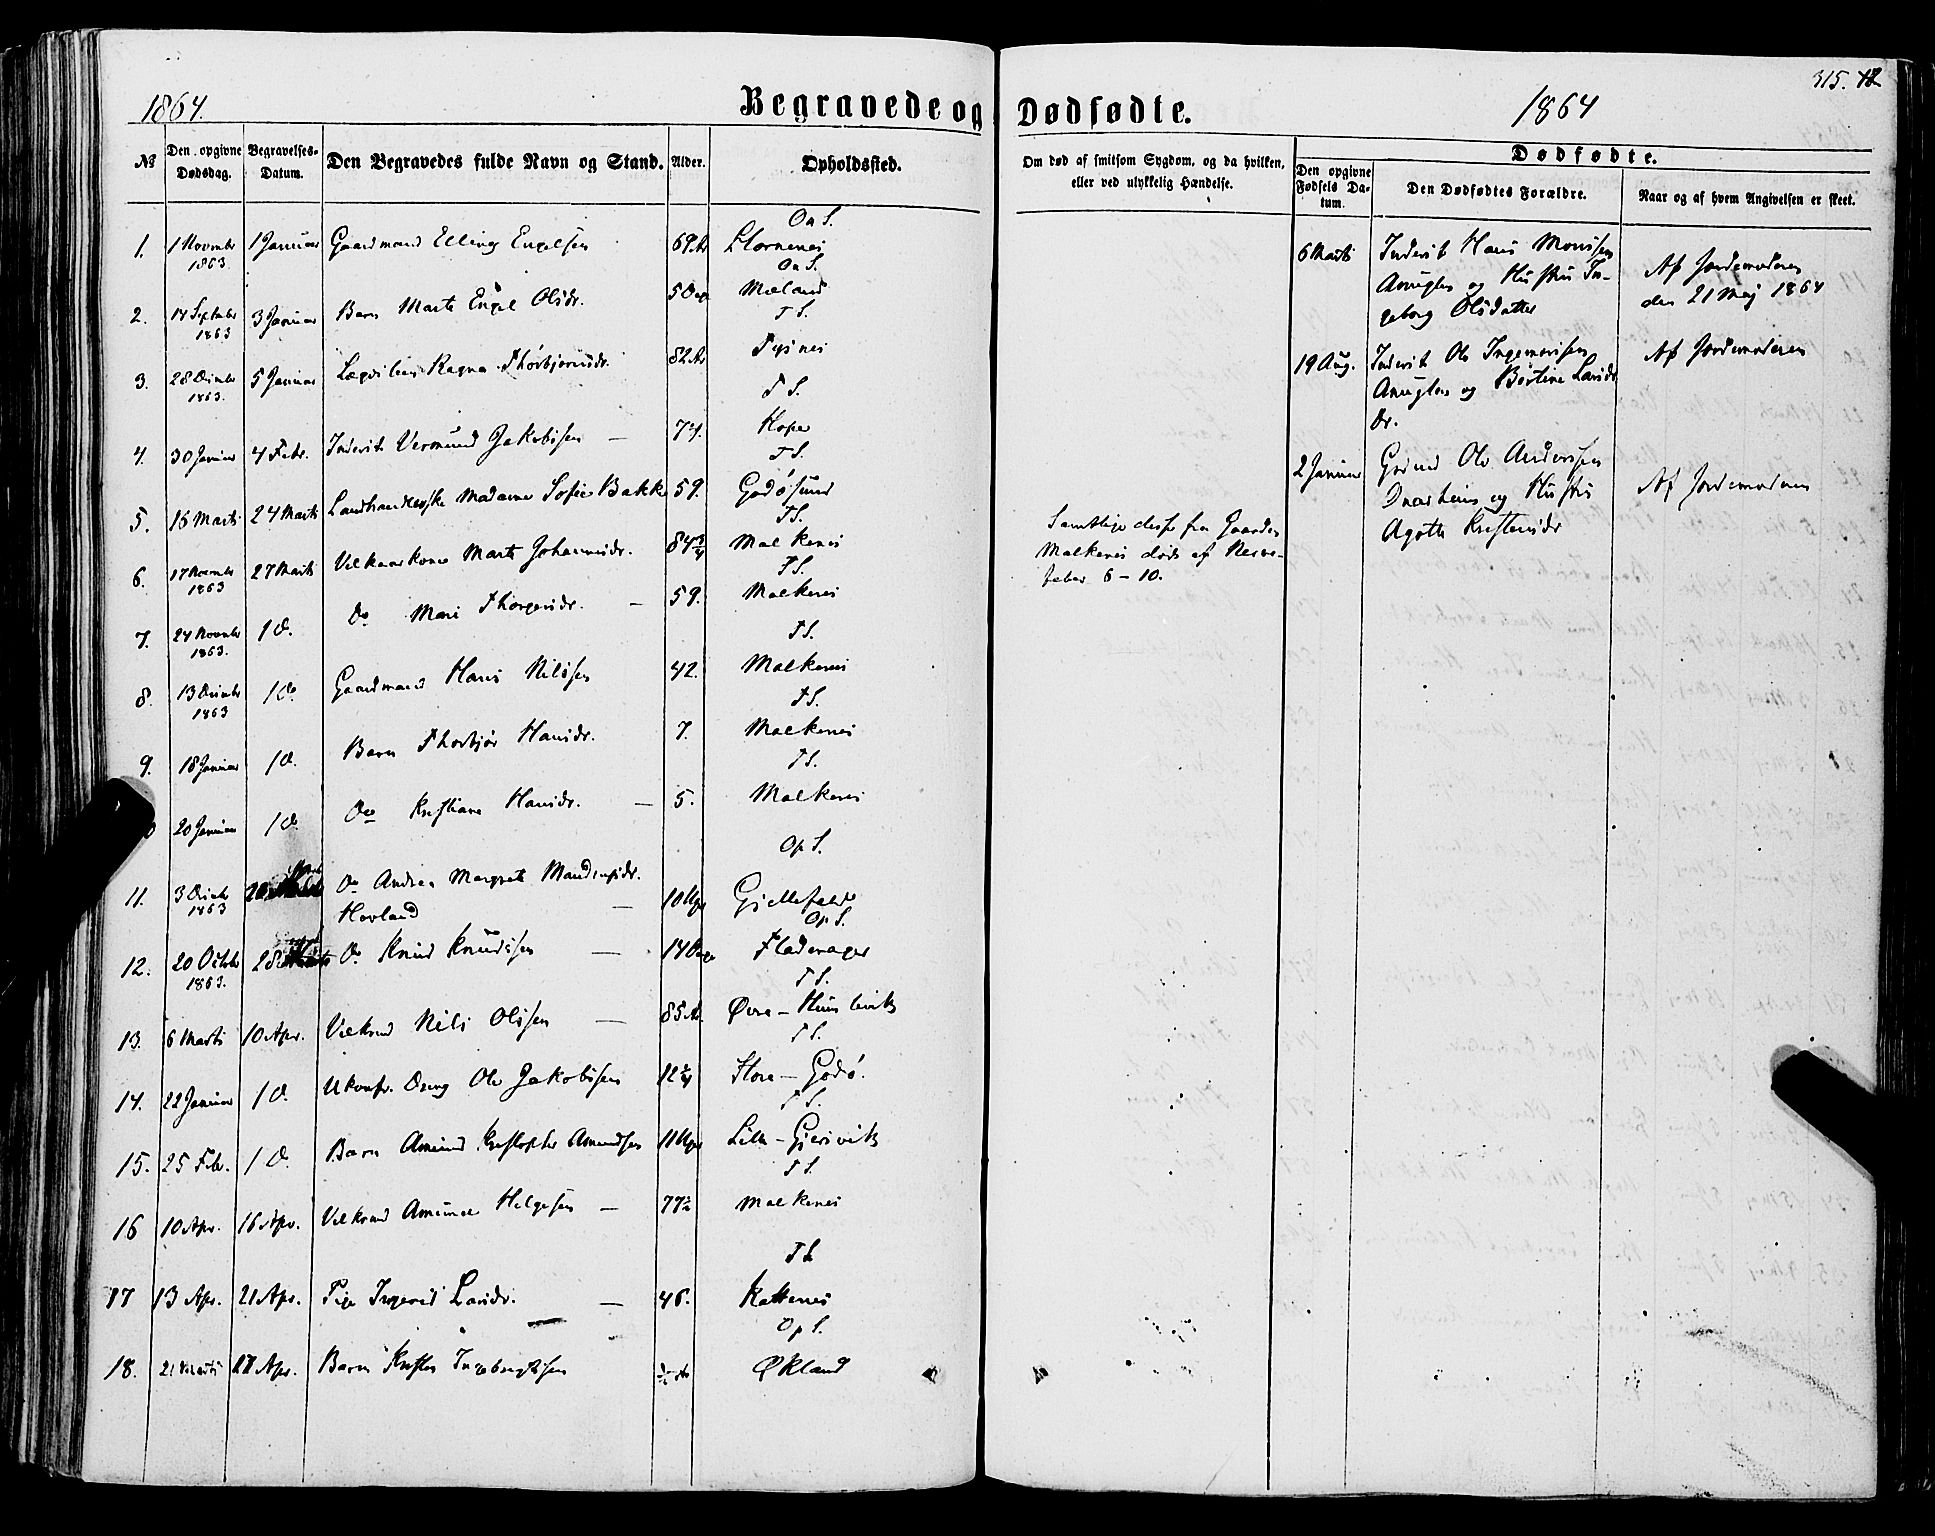 1864.
Begravede og Dødfødte.
1864
315. 12
№
Den opgivne Dødsdag.
Begravelses-Datum.
Den Begravedes fulde Navn og Stand.
Alder.
Opholdssted.
Om død af smitsom Sygdom, og da hvilken, eller ved ulykkelig Hændelse.
Dødfødte.
Den opgivne Fødsels Da-tum.
Den Dødfødtes Forældre.
Naar og af hvem Angivelsen er skeet.
On S.
1. 1 November 1863 1 Januar Gaardmand Elling Engelsen 69 Ar
On S.
2. 14 September 1863 3 Januar Barn Marte Engel Olsdr. Mæland
T S.
3. 28 December 1863. 5 Januar Ragna Thorbjørnsdr. 82 Ar Tysnes
T S.
4. 30 Januar 4 Febr. Inderst Vermund Jakobsen — 74. Hope
T S.
5. 16 Marts 24 Marts Landhandlerske Madame Sofie Bakke 59. Godøsund
T S.
6. 17 November 1863 27 Marts Vilkaarkone Marte Johannesdr. 84 3/4 Malkenes
T S.
7. 24 November 1863. 1 D. Do Mari Thorgersdr. — 59. Malkenes
T S.
8. 13 December 1863 1 Do Gaardmand Hans Nilssen 42. Malkenes
T S.
9. 18 Januar 1 D. Barn Thorbjør Hansdr. 7. Malkenes
T S.
20 Januar 1 D. Do Kristiane Hansdr. — 5. Malkenes
Op S.
11. 3 December 1863 Do Andrea Margrete
Hovland — 10 Uger
Op S.
12. 20 October 1863. 28 Do Knud Knudssen — 14 Dage Fladerager
T S.
13. 6 Marts 10 Apr. Vilkmd Nils Olssen — 85 Ar. Øvre-Humlevik
T S.
14. 22 Januar 1 D. Ukonfr. Dreng Ole Jakobssen 12 Store-Godø.
T S.
15. 25 Febr. 1 D. Barn Amund Kristopher Amundsen 11 Uger Lille-Gjersvik
T S.
16 10 Apr. 16 Apr. Vilkmd Amund Helgesen — 77½ Malkenes
T S
17 13 Apr. 21 Apr. Pige Ingerid Larsdr. — 46. Kattenes
Op S.
18. 21 Marts 27 Apr. Barn Krister Ingebrigtsen ½ Ar Økland
Samtlige disse fra Gaarden
Malkenes døde af Nerve-
feber 6 – 10.
6 Marts Inderst Hans Monssen
Anuglen og Hustru In-
geborg Olsdatter
Af Jordemoderen
den 21 Maj 1864
19 Aug. Inderst Ole Ingemorsen
Anuglen og Børtine Larsdr
Dr.
Af Jordemoderen
2 Januar Grdmd Ole Anderssen
og Hustru
Agotte Kristensdr
Af Jordemoderen